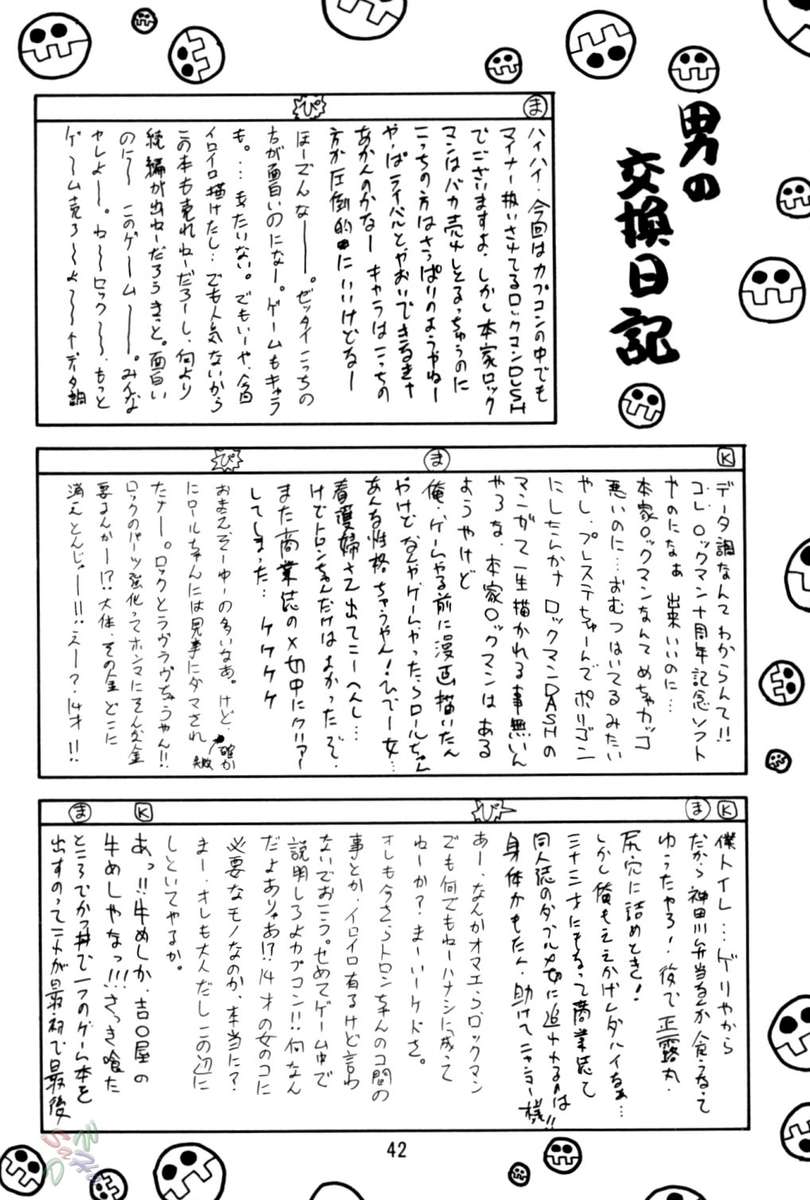 男の
交換日記
ま
ハイハイ、今回はカプコンの中でも
マイナー扱いさせてるロックマンDASH
でございますよ。しかし本家ロック
マンはバカ売れしとるっちゅうのに
こっちの方はさっぱりのようやねー
やっぱライバルと、やおいできるキャ
あかんのかなー キャラはこっちの
方が圧倒的にいいけどなー
ぴ
ほーでんなーー。ゼッタイこっちの
ちが面白いのになー。ゲームもキャラ
も。…またいない。でもいーや、今回
イロイロ描けたし…でも人気ないから
この本も売れねーだろーし、何より
続編が出ねーだろうきっと。面白い
のに〜〜 このゲーム〜〜。みんな
やしよー。ねーロックー〜、もっと
ゲーム売ろ〜よ〜〜 データ調
K
データ調なんてわからんて!!
コレ、ロックマン十周年記念ソフト
やのになぁ 出来いいのに…
本家ロックマンなんてめちゃカッコ
悪いのに…おむつはいてるみたい
やし。プレステちゃーんでポリゴン
にしたんかな ロックマンDASHの
マンガて一生描かれる事無いん
やろな。本家ロックマンは ある
ようやけど
ま
俺、ゲームやる前に漫画描いたん
やけど なんやゲームやったらロールちゃん
あんな性格 ちゃうやん!ひでー女…
看護婦さんて出てこーへんし…
けどトロンちゃんだけはよかったぞ。
また商業誌の〆切中にクリアー
してしまった… ケケケケ
ぴ
おまえそーゆーの多いなあ。けど、確か
にロールちゃんには見事にダマされ
たナー。ロックとラヴラヴちゃうやん!!
ロックのパーツ強化ってホンマにそんな金
要るんかー!?大体、その金 どこに
消えとんじゃー!!えー?14才!!
K
僕トイレ…ゲリやから
ま
だから神田川弁当なんか食うなって
ゆうたやろ!後で正露丸、
尻穴に詰めとき!
しかし俺もええかげんダハイなぁ…
三十三才にもなって商業誌で
同人誌のダブル〆切に追われるのは
身体がもたん、助けてニャンコー様!!
ぴ
あー、なんかオマエら、ロックマン
でも何でもねーハナシに成って
ねーか?まーいーケドさ。
オレも今さらトロンちゃんのコ間の
事とか、イロイロ有るけど言わ
ないでおこう。せめてゲーム中で
説明しろよカプコン!!何なん
だよありゃあ!?14才の女のコに
必要なモノなのか、本当に?
まー、オレも大人だし この辺に
しといてやるか。
K
あっ!!牛めしか、吉〇屋の
牛めしやなっ!!!さっき喰た
ま
ところでかつ丼で一つのゲーム本を
出すのってコトが最初で最後
42